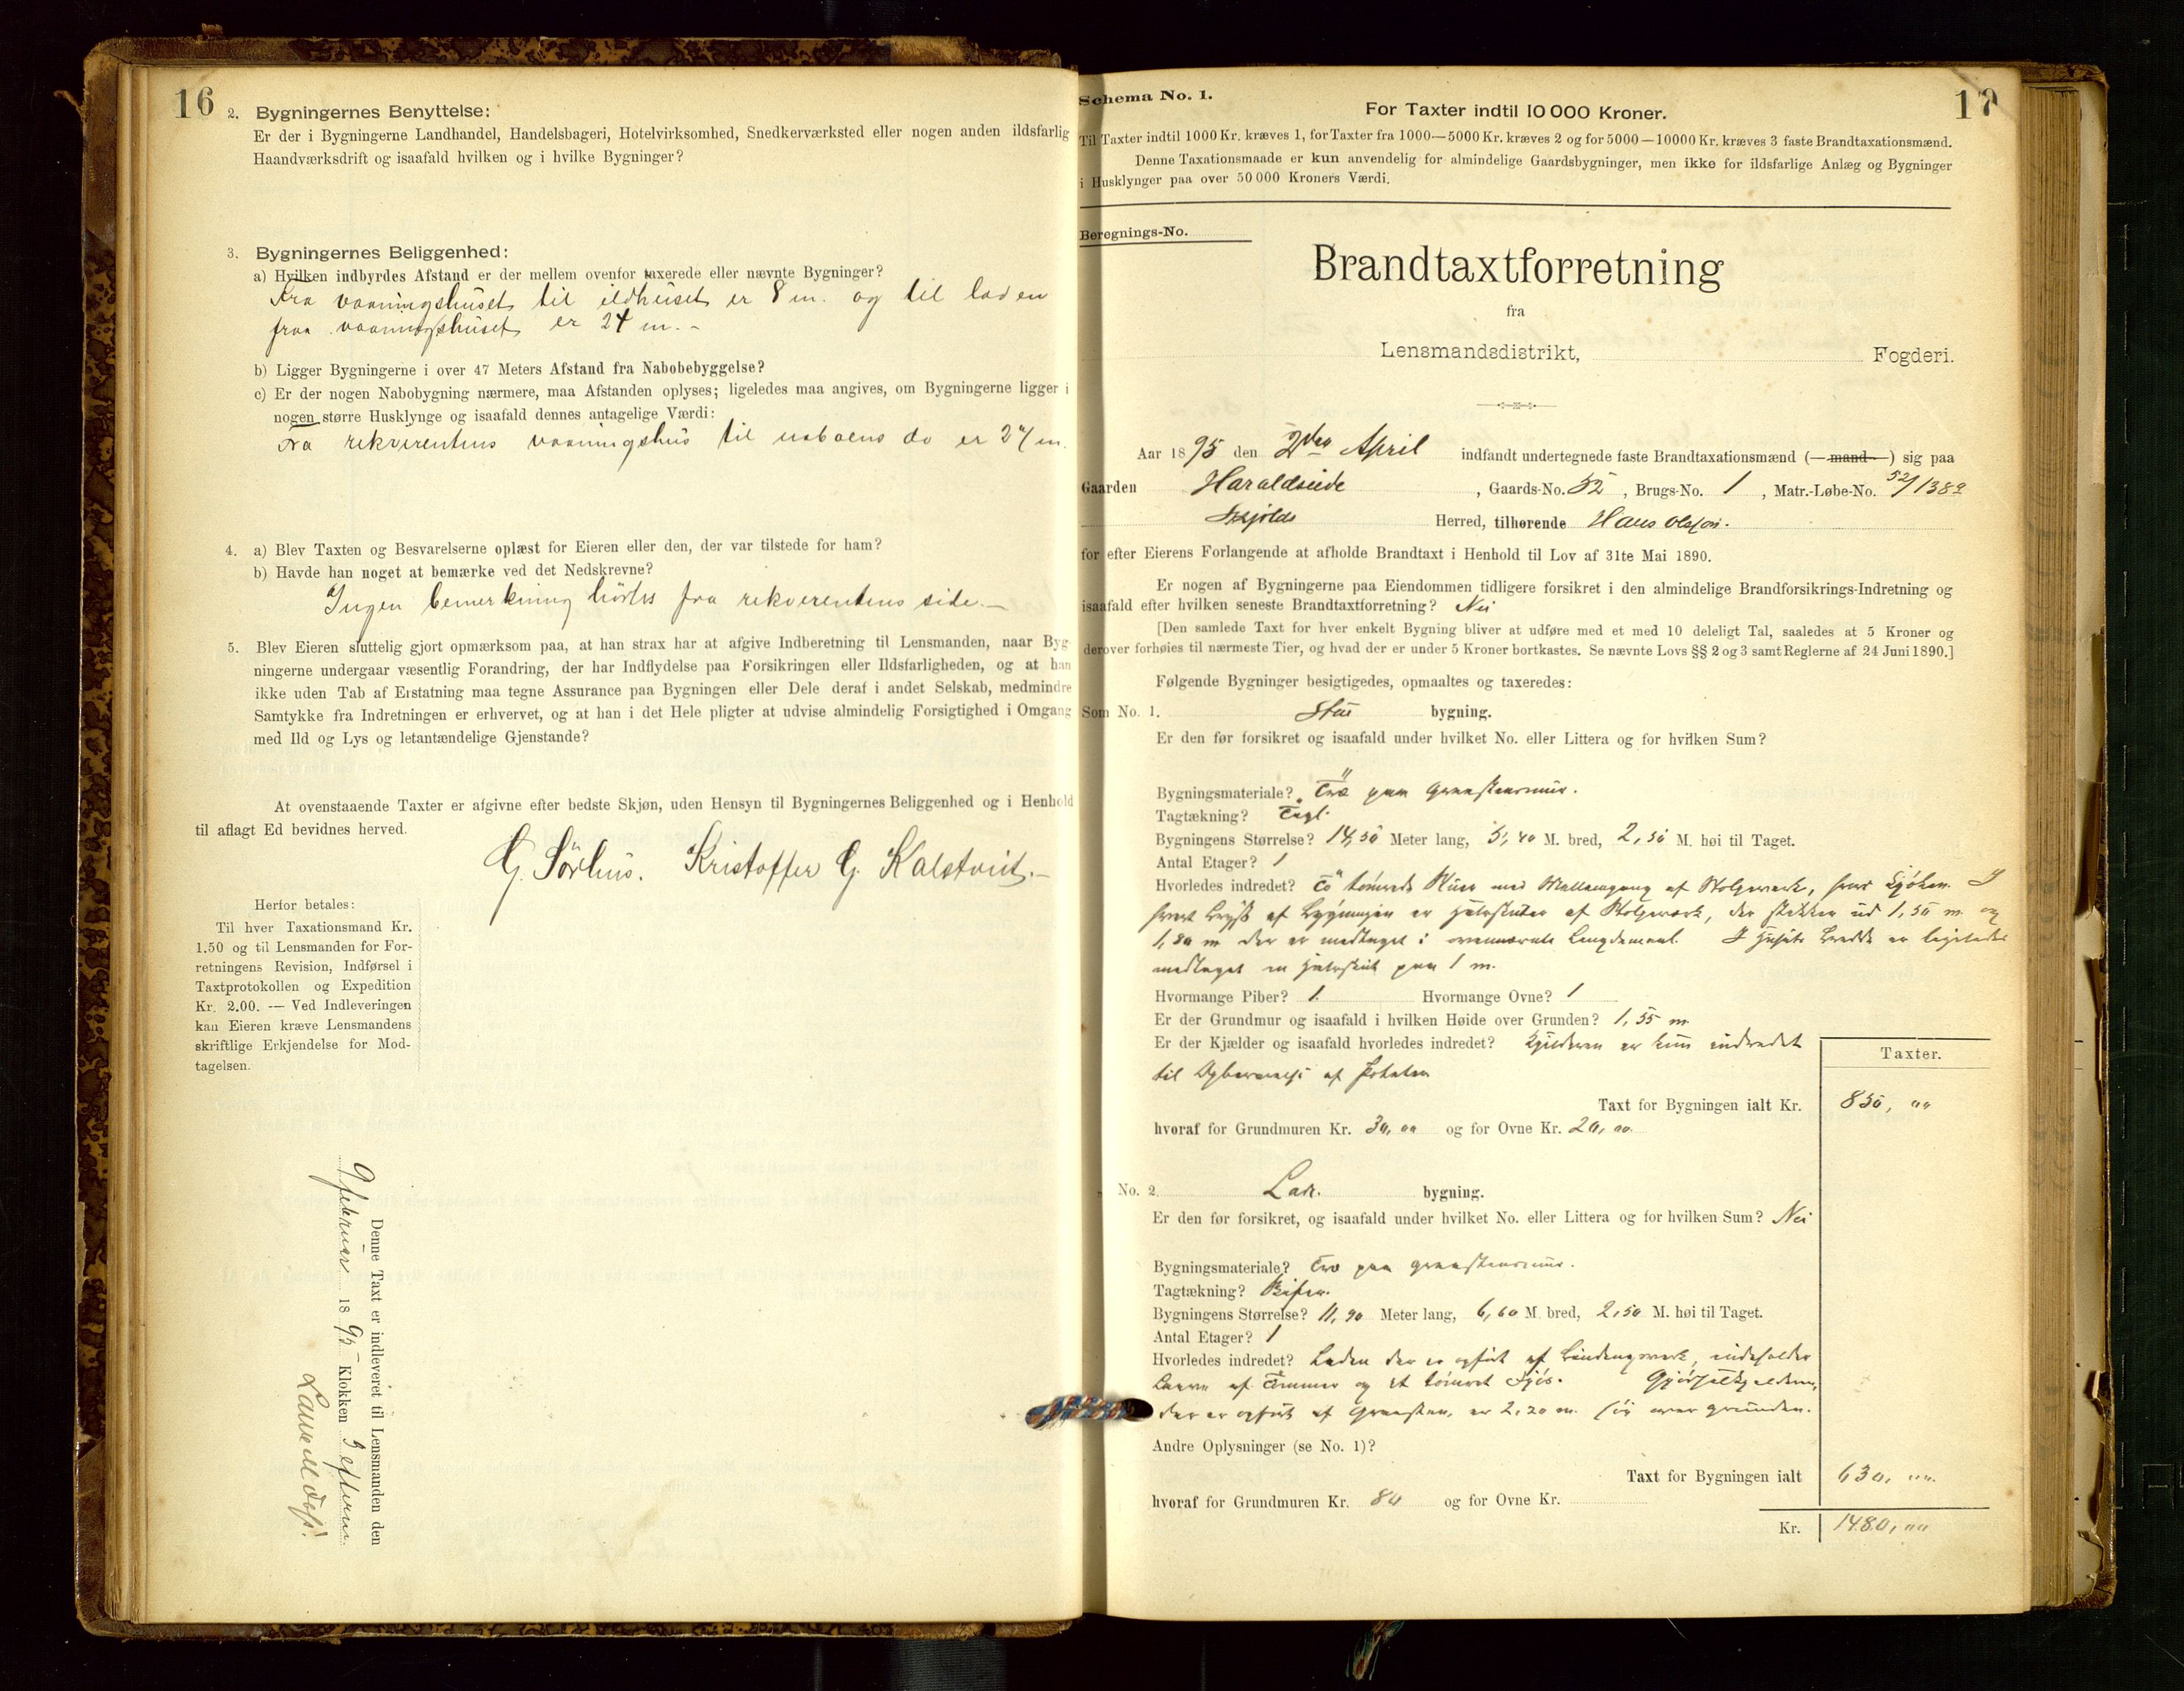 16
2. Bygningernes Benyttelse:
Er der i Bygningerne Landhandel, Handelsbageri, Hotelvirksomhed, Snedkerværksted eller nogen anden ildsfarlig
Haandværksdrift og isaafald hvilken og i hvilke Bygninger?
3. Bygningernes Beliggenhed:
a) Hvilken indbyrdes Afstand er der mellem ovenfor taxerede eller nævnte Bygninger?
Fra vaaningshuset til ildhuset er 8 m. og til laden
fraa vaaningshuset er 24 m. -
b) Ligger Bygningerne i over 47 Meters Afstand fra Nabobebyggelse?
c) Er der nogen Nabobygning nærmere, maa Afstanden oplyses; ligeledes maa angives, om Bygningerne ligger i
nogen større Husklynge og isaafald dennes antagelige Værdi:
Fra rekvirentens vaaningshus til naboens do er 24 m.
4. a) Blev Taxten og Besvarelserne oplæst for Eieren eller den, der var tilstede for ham?
b) Havde han noget at bemærke ved det Nedskrevne?
Ingen bemerkning hørtes fra rekverentens side. -
5. Blev Eieren sluttelig gjort opmærksom paa, at han strax har at afgive Indberetning til Lensmanden, naar Byg-
ningerne undergaar væsentlig Forandring, der har Indflydelse paa Forsikringen eller Ildsfarligheden, og at han
ikke uden Tab af Erstatning maa tegne Assurance paa Bygningen eller Dele deraf i andet Selskab, medmindre
Samtykke fra Indretningen er erhvervet, og at han i det Hele pligter at udvise almindelig Forsigtighed i Omgang
med Ild og Lys og letantændelige Gjenstande?
At ovenstaaende Taxter er afgivne efter bedste Skjøn, uden Hensyn til Bygningernes Beliggenhed og i Henhold
til aflagt Ed bevidnes herved.
G. Sørhus. Kristoffer G. Kalstveit. -
Herfor betales:
Til hver Taxationsmand Kr.
1.50 og til Lensmanden for For-
retningens Revision, Indførsel i
Taxtprotokollen og Expedition
Kr. 2.00. — Ved Indleveringen
kan Eieren kræve Lensmandens
skriftlige Erkjendelse for Mod-
tagelsen.
Denne Taxt er indleveret til Lensmanden den
9 februar 1895 Klokken 5 efterm.
17
Schema No. 1.
For Taxter indtil 10 000 Kroner.
Til Taxter indtil 1000 Kr. kræves 1, for Taxter fra 1000—5000 Kr. kræves 2 og for 5000—10000 Kr. kræves 3 faste Brandtaxationsmænd.
Denne Taxationsmaade er kun anvendelig for almindelige Gaardsbygninger, men ikke for ildsfarlige Anlæg og Bygninger
i Husklynger paa over 50 000 Kroners Værdi.
Beregnings-No.
Brandtaxtforretning
fra
Lensmandsdistrikt, Fogderi.
Aar 1895 den 2den April indfandt undertegnede faste Brandtaxationsmænd (—mand—) sig paa
Gaarden Haraldseide, Gaards-No. 52, Brugs-No. 1, Matr.-Løbe-No. 52/138a
Skjolds Herred, tilhørende Hans Olsson.
for efter Eierens Forlangende at afholde Brandtaxt i Henhold til Lov af 31te Mai 1890.
Er nogen af Bygningerne paa Eiendommen tidligere forsikret i den almindelige Brandforsikrings-Indretning og
isaafald efter hvilken seneste Brandtaxtforretning? Nei
[Den samlede Taxt for hver enkelt Bygning bliver at udføre med et med 10 deleligt Tal, saaledes at 5 Kroner og
derover forhøies til nærmeste Tier, og hvad der er under 5 Kroner bortkastes. Se nævnte Lovs §§ 2 og 3 samt Reglerne af 24 Juni 1890.]
Følgende Bygninger besigtigedes, opmaaltes og taxeredes:
Som No. 1. Stue bygning.
Er den før forsikret og isaafald under hvilket No. eller Littera og for hvilken Sum?
Bygningsmateriale? Træ paa Graastensmur.
Tagtækning? Tagl.
Bygningens Størrelse? 14,50 Meter lang, 5,40 M. bred, 2,50 M. høi til Taget.
Antal Etager? 1
Hvorledes indredet? To tømrede Stuer med Mellemgang af Stolpeverk, samt Kjøken. I
hvert af Bygningen er Halvskuter af Stolpeverk, der stikker ud 1,50 m og
1,80 m der er medtaget i ovennævnte Lengdemaal. I Husets Bredde er ligeledes
medtaget en Halvskut paa 1 m.
Hvormange Piber? 1. Hvormange Ovne? 1
Er der Grundmur og isaafald i hvilken Høide over Grunden? 1,55 m
Er der Kjælder og isaafald hvorledes indredet? Kjelderen er kun indredet
til Opbevaring af Poteter
Taxter.
Taxt for Bygningen ialt Kr. 850, 00
hvoraf for Grundmuren Kr. 30,00 og for Ovne Kr. 20,00.
No. 2. Lade. bygning.
Er den før forsikret, og isaafald under hvilket No. eller Littera og for hvilken Sum? Nei
Bygningsmateriale? Træ paa graastensmur.
Tagtækning?
Bygningens Størrelse? 11,90 Meter lang, 6,60 M. bred, 2,50 M. høi til Taget.
Antal Etager? 1
Hvorledes indredet? Laden der er opført af Bindingsverk, indeholder
Laave af Tømmer og et tømret Fjøs. Gjødselkjelderen,
der er opført af Graasten, er 2,20 m. høi over grunden.
Andre Oplysninger (se No. 1)?
Taxt for Bygningen ialt 630, 00.
hvoraf for Grundmuren Kr. 80 og for Ovne Kr.
Kr. 1480,00